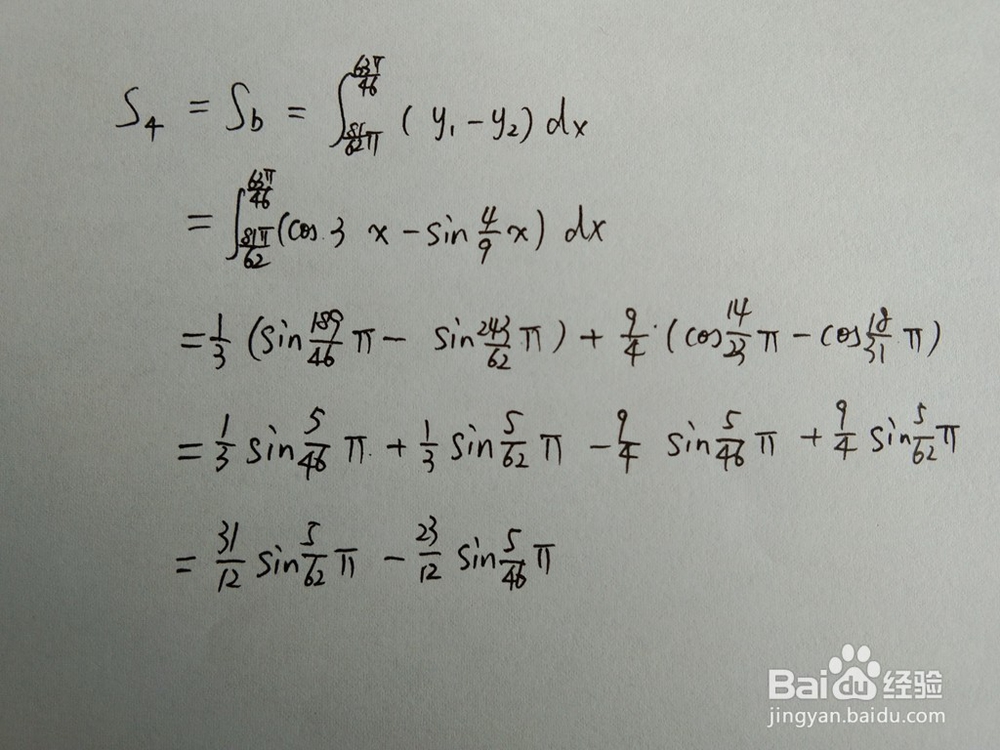 S₄ = S_b = ∫_{81/62 π}^{63π/46} (y₁ - y₂) dx
= ∫_{81π/62}^{63π/46} (cos 3 x - sin 4/9 x) dx
= 1/3 (sin 189/46 π - sin 243/62 π) + 9/4 · (cos 14/23 π - cos 18/31 π)
= 1/3 sin 5/46 π + 1/3 sin 5/62 π - 9/4 sin 5/46 π + 9/4 sin 5/62 π
= 31/12 sin 5/62 π - 23/12 sin 5/46 π
Baidu 经验
jingyan.baidu.com